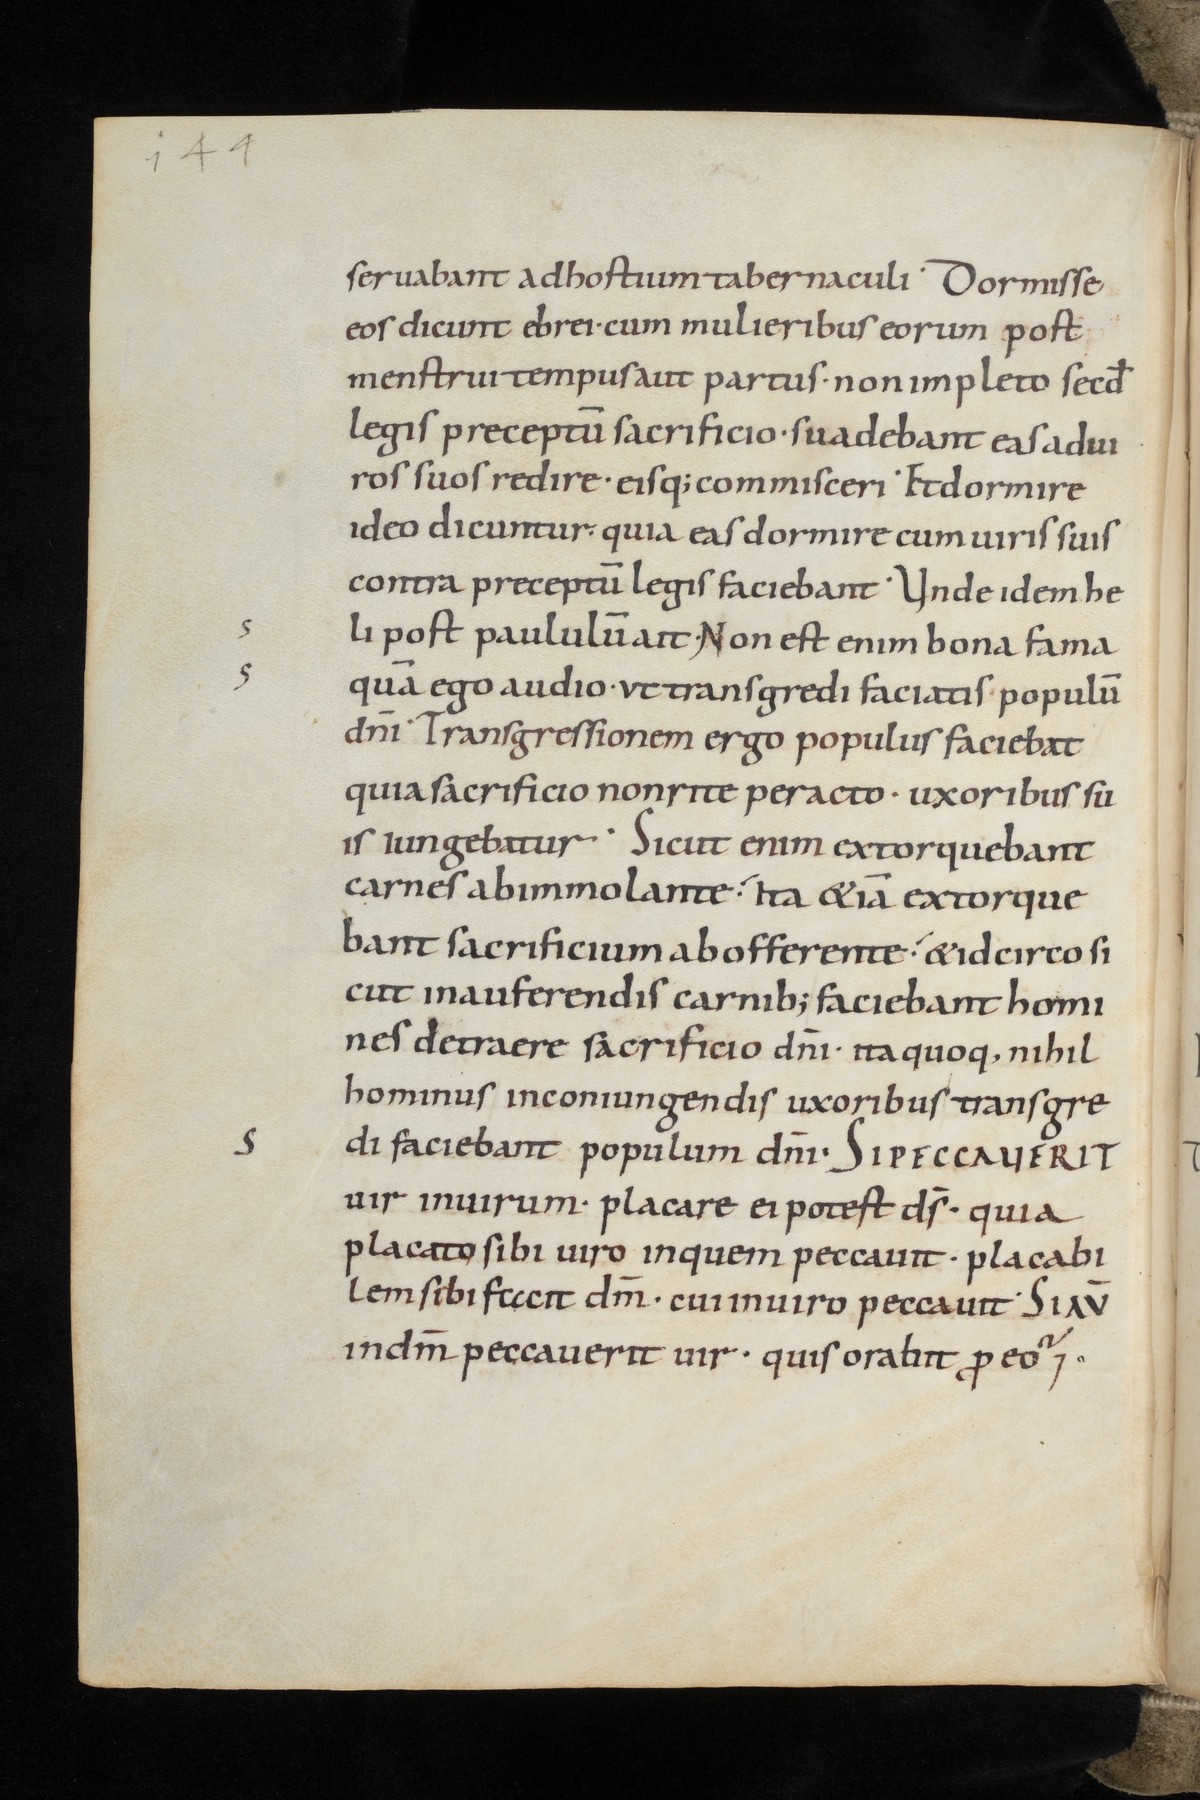 144
seruabant adhostium tabernaculi· Dormisse
eos dicunt ebrei· cum mulieribus eorum post
menstrui tempus aut partus· non impleto secd̄
legis preceptū sacrificio· suadebant eas adui
ros suos redire· eisq; commisceri· Et dormire
ideo dicuntur· quia eas dormire cum uiris suis
contra preceptū legis faciebant· Unde idem he
s li post paululū ait· Non est enim bona fama
s quā ego audio· vt transgredi faciatis populū
dn̄i· Transgressionem ergo populus faciebat
quia sacrificio non rite peracto· uxoribus su
is iungebatur· Sicut enim extorquebant
carnes abimmolante· Ita &iā extorque
bant sacrificium ab offerente· & idcirco si
cut inauferendis carnib; faciebant homi
nes detraere sacrificio dn̄i· ita quoq, nihil
hominus inconiungendis uxoribus transgre
S di faciebant populum dn̄i· SI PECCAUERIT
uir inuirum· placare ei potest ds̄· quia
placato sibi uiro inquem peccauit· placabi
lem sibi fecit dm̄· cui inuiro peccauit· SI AV̄
indm̄ peccauerit uir· quis orabit ꝓ eo·